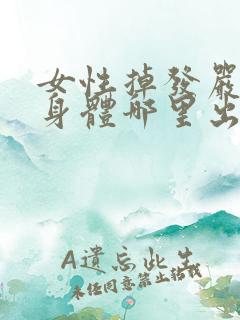 女性掉發嚴
身體哪里出
A遺忘此生
未经同意禁止转载